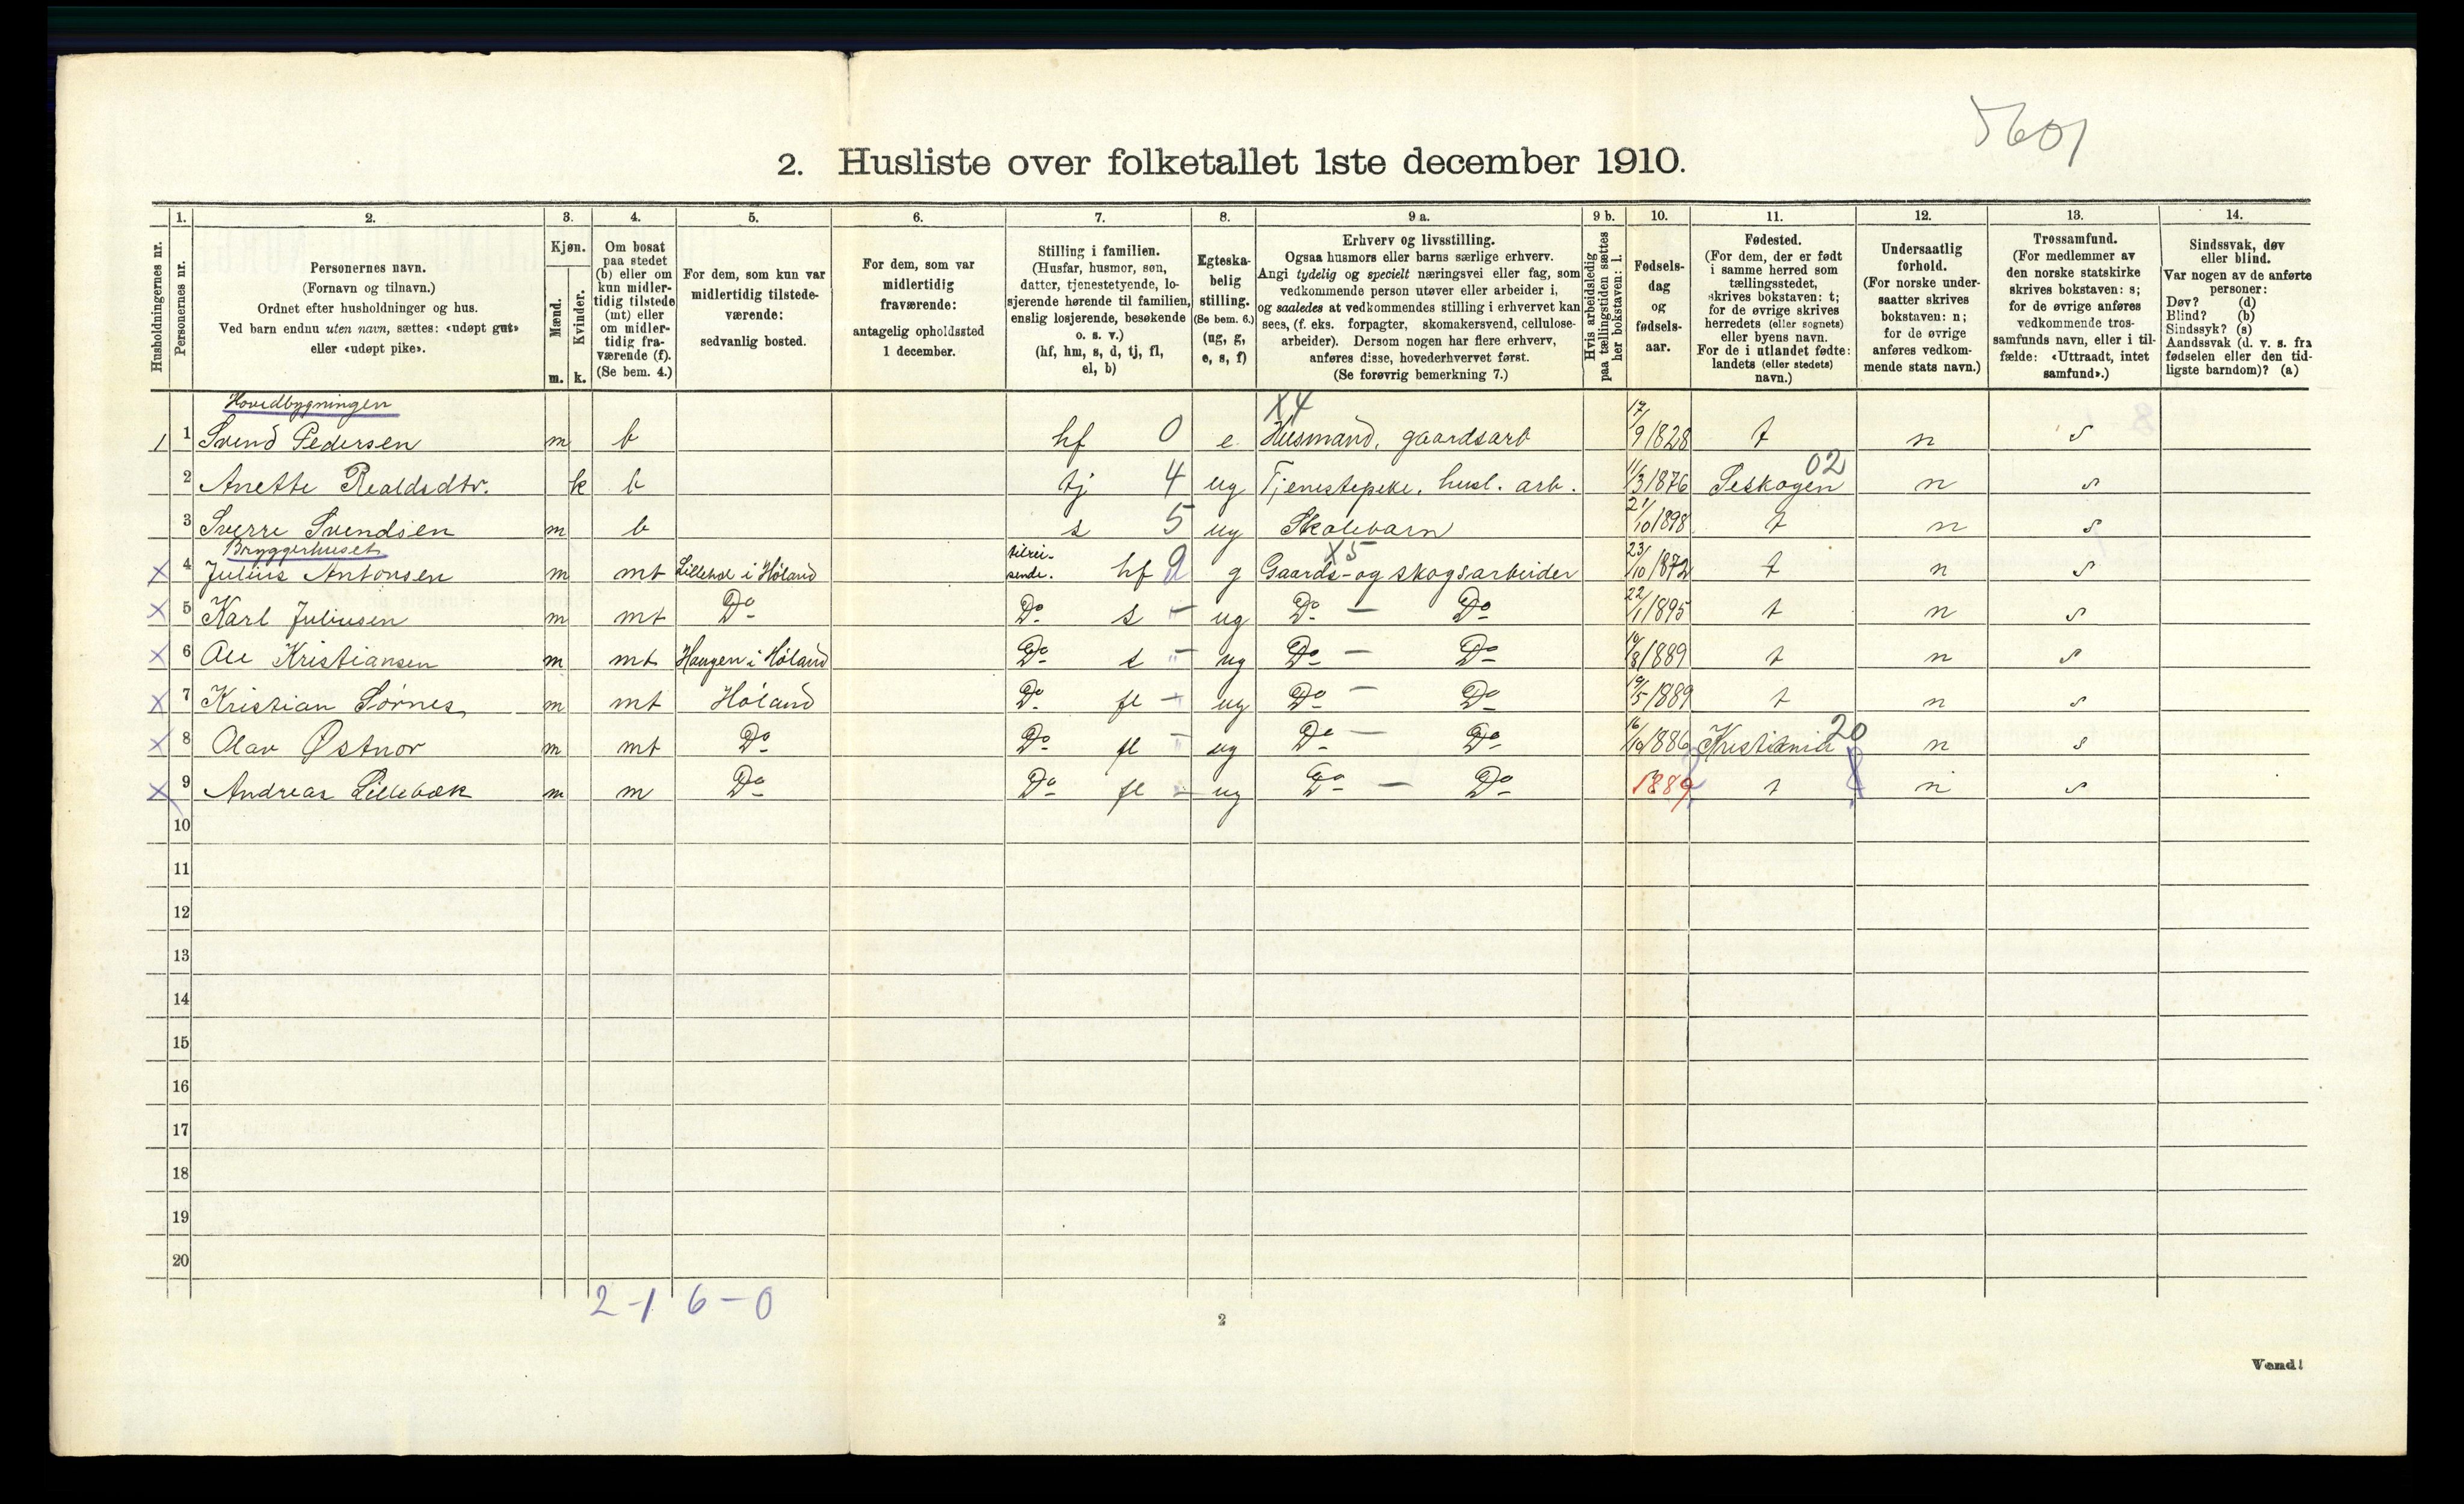 5601
2. Husliste over folketallet 1ste december 1910.
Husholdningernes nr.
1.
Personernes nr.
2.
Personernes navn.
(Fornavn og tilnavn.)
Ordnet efter husholdninger og hus.
Ved barn endnu uten navn, sættes: «udøpt gut»
eller «udøpt pike».
3.
Kjøn.
Mænd.
Kvinder.
m. k.
4.
Om bosat
paa stedet
(b) eller om
kun midler-
tidig tilstede
(mt) eller
om midler-
tidig fra-
værende (f).
(Se bem. 4.)
5.
For dem, som kun var
midlertidig tilstede-
værende:
sedvanlig bosted.
6.
For dem, som var
midlertidig
fraværende:
antagelig opholdssted
1 december.
7.
Stilling i familien.
(Husfar, husmor, søn,
datter, tjenestetyende, lo-
sjerende hørende til familien,
enslig losjerende, besøkende
o. s. v.)
(hf, hm, s, d, tj, fl,
el, b)
8.
Egteska-
belig
stilling.
(Se bem. 6.)
(ug, g,
e, s, f)
9 a.
Erhverv og livsstilling.
Ogsaa husmors eller barns særlige erhverv.
Angi tydelig og specielt næringsvei eller fag, som
vedkommende person utøver eller arbeider i,
og saaledes at vedkommendes stilling i erhvervet kan
sees, (f. eks. forpagter, skomakersvend, cellulose-
arbeider). Dersom nogen har flere erhverv,
anføres disse, hovederhvervet først.
(Se forøvrig bemerkning 7.)
9 b.
Hvis arbeidsledig
paa tællingstiden sættes
her bokstaven: l.
10.
Fødsels-
dag
og
fødsels-
aar.
11.
Fødested.
(For dem, der er født
i samme herred som
tællingsstedet,
skrives bokstaven: t;
for de øvrige skrives
herredets (eller sognets)
eller byens navn.
For de i utlandet fødte:
landets (eller stedets)
navn.)
12.
Undersaatlig
forhold.
(For norske under-
saatter skrives
bokstaven: n;
for de øvrige
anføres vedkom-
mende stats navn.)
13.
Trossamfund.
(For medlemmer av
den norske statskirke
skrives bokstaven: s;
for de øvrige anføres
vedkommende tros-
samfunds navn, eller i til-
fælde: «Uttraadt, intet
samfund».)
14.
Sindssvak, døv
eller blind.
Var nogen av de anførte
personer:
Døv? (d)
Blind? (b)
Sindssyk? (s)
Aandssvak (d. v. s. fra
fødselen eller den tid-
ligste barndom)? (a)
Hovedbygningen X4
1 1 Svend Pedersen m b hf 0 e Husmand, gaardsarb 17/9 1828 t n s
2 Anette Realdsdtr. k b tj 4 ug Tjenestepike, husl. arb. 11/3 1876 Seskogen 02 n s
3 Sverre Svendsen m b s 5 ug Skolebarn 21/10 1898 t n s
Bryggerhuset tilrei- X5
X 4 Julius Antonsen m mt Lillebæk i Høland sende. hf 9 g Gaards- og skogsarbeider 23/10 1872 t n s
X 5 Karl Juliusen m mt Do Do s - ug Do - Do 22/1 1895 t n s
X 6 Ole Kristiansen m mt Haugen i Høland Do s - ug Do - Do /8 1889 t n s
X 7 Kristian Sørnes m mt Høland Do fl - ug Do - Do 19/5 1889 t n s
X 8 Olav Østnor m mt Do Do fl - ug Do - Do 16/10 1886 Kristiania 20 n s
X 9 Andreas Lillebæk m m Do Do fl - ug Do - Do 1889 t n s
10
11
12
13
14
15
16
17
18
19
20
2-1 6-0
2
Vend!